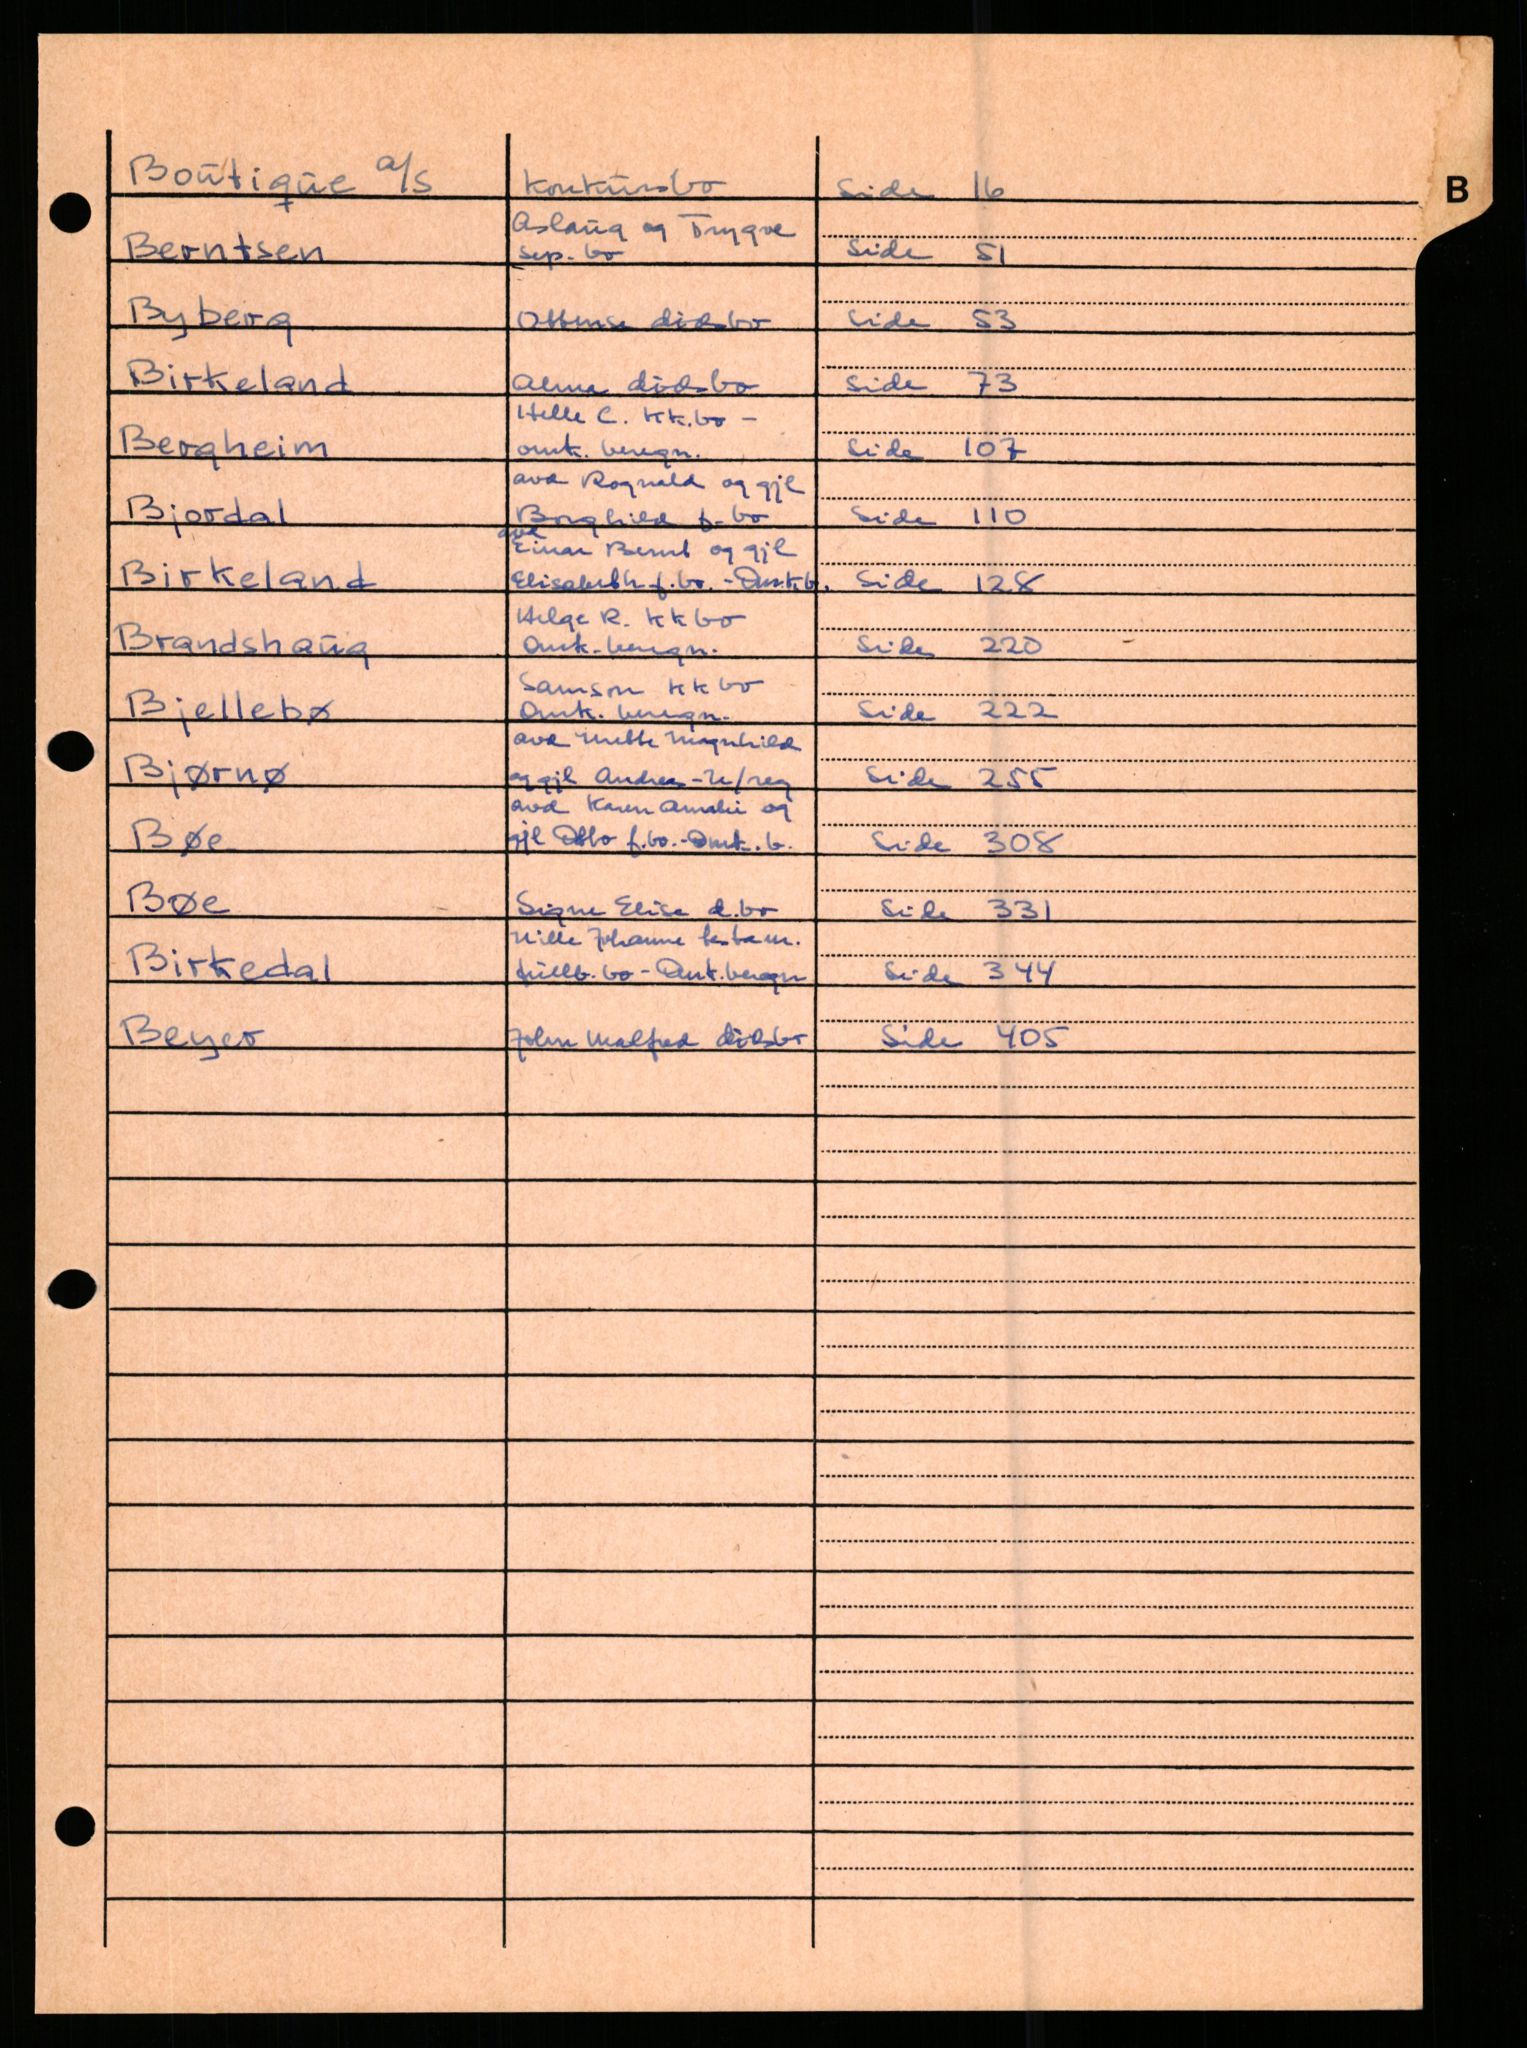 B
Boutique a/s Konkursbo Side 16
Aslaug og Trygve
Berntsen sep. bo Side 51
Byberg dødsbo Side 53
Birkeland Alma dødsbo Side 73
Helle C. KK.bo -
Bergheim omk. beregn. Side 107
avd Rognald og gjl
Bjordal Borghild f. bo Side 110
avd
Einar Bernt og gjl
Birkeland Elisabeth f. bo. - Omk.b. Side 128
Helge R. KK bo
Brandshaug Omk. beregn. Side 220
Samson KK bo
Bjellebø Omk. beregn. Side 222
avd Mette Magnhild
Bjørnø og gjl Andreas - U/reg Side 255
avd Karen Amalie og
Bøe gjl Otto f. bo. - Omk. b. Side 308
Bøe Signe Elise d. bo Side 331
Nille Johanne testam.
Birkedal fullb. bo - Omk. beregn Side 344
Beyer John Malfred dødsbo Side 405